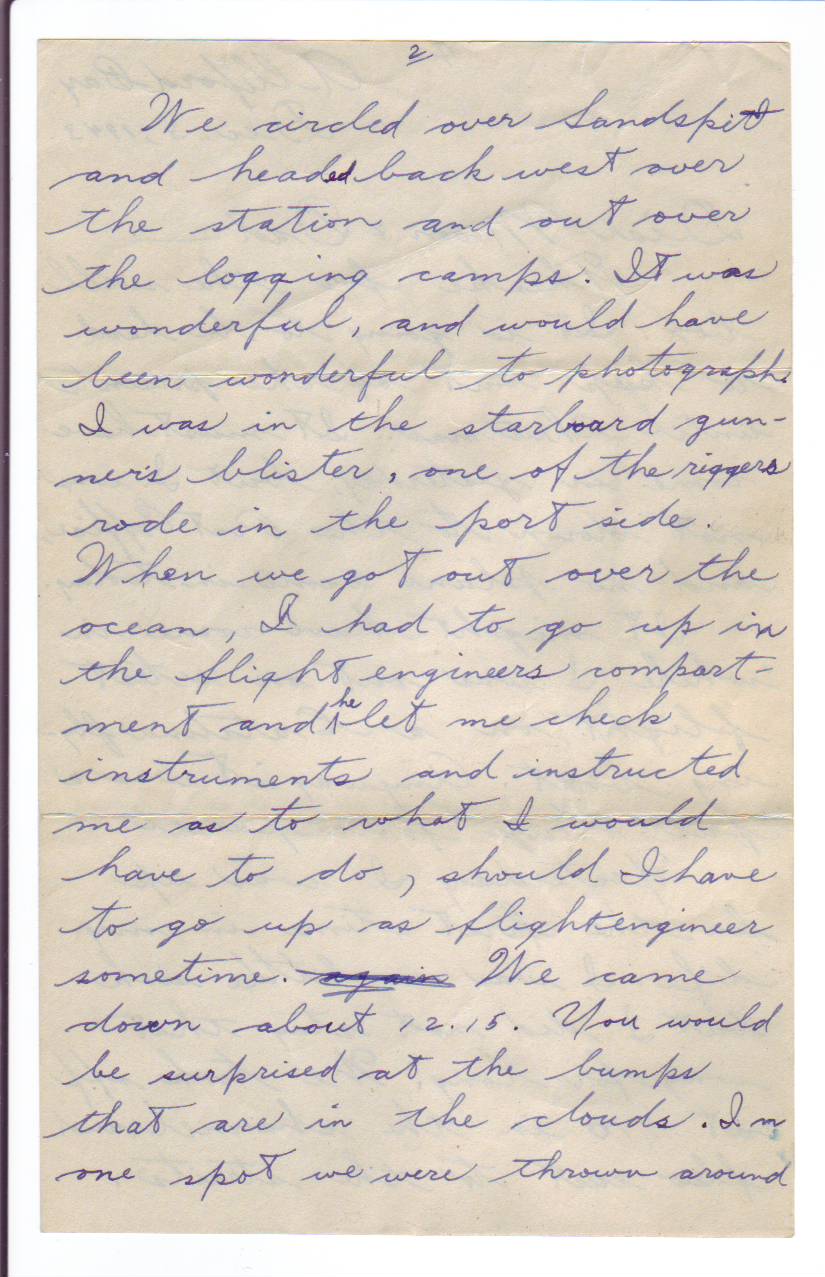 2
We circled over Sandspit
and headed back west over
the station and out over
the logging camps. It was
wonderful, and would have
been wonderful to photograph.
I was in the starboard gun-
ner's blister, one of the riggers
rode in the port side.
When we got out over the
ocean, I had to go up in
the flight engineers compart-
ment and he let me check
instruments and instructed
me as to what I would
have to do, should I have
to go up as flight engineer
sometime. again We came
down about 12.15. You would
be surprised at the bumps
that are in the clouds. In
one spot we were thrown around